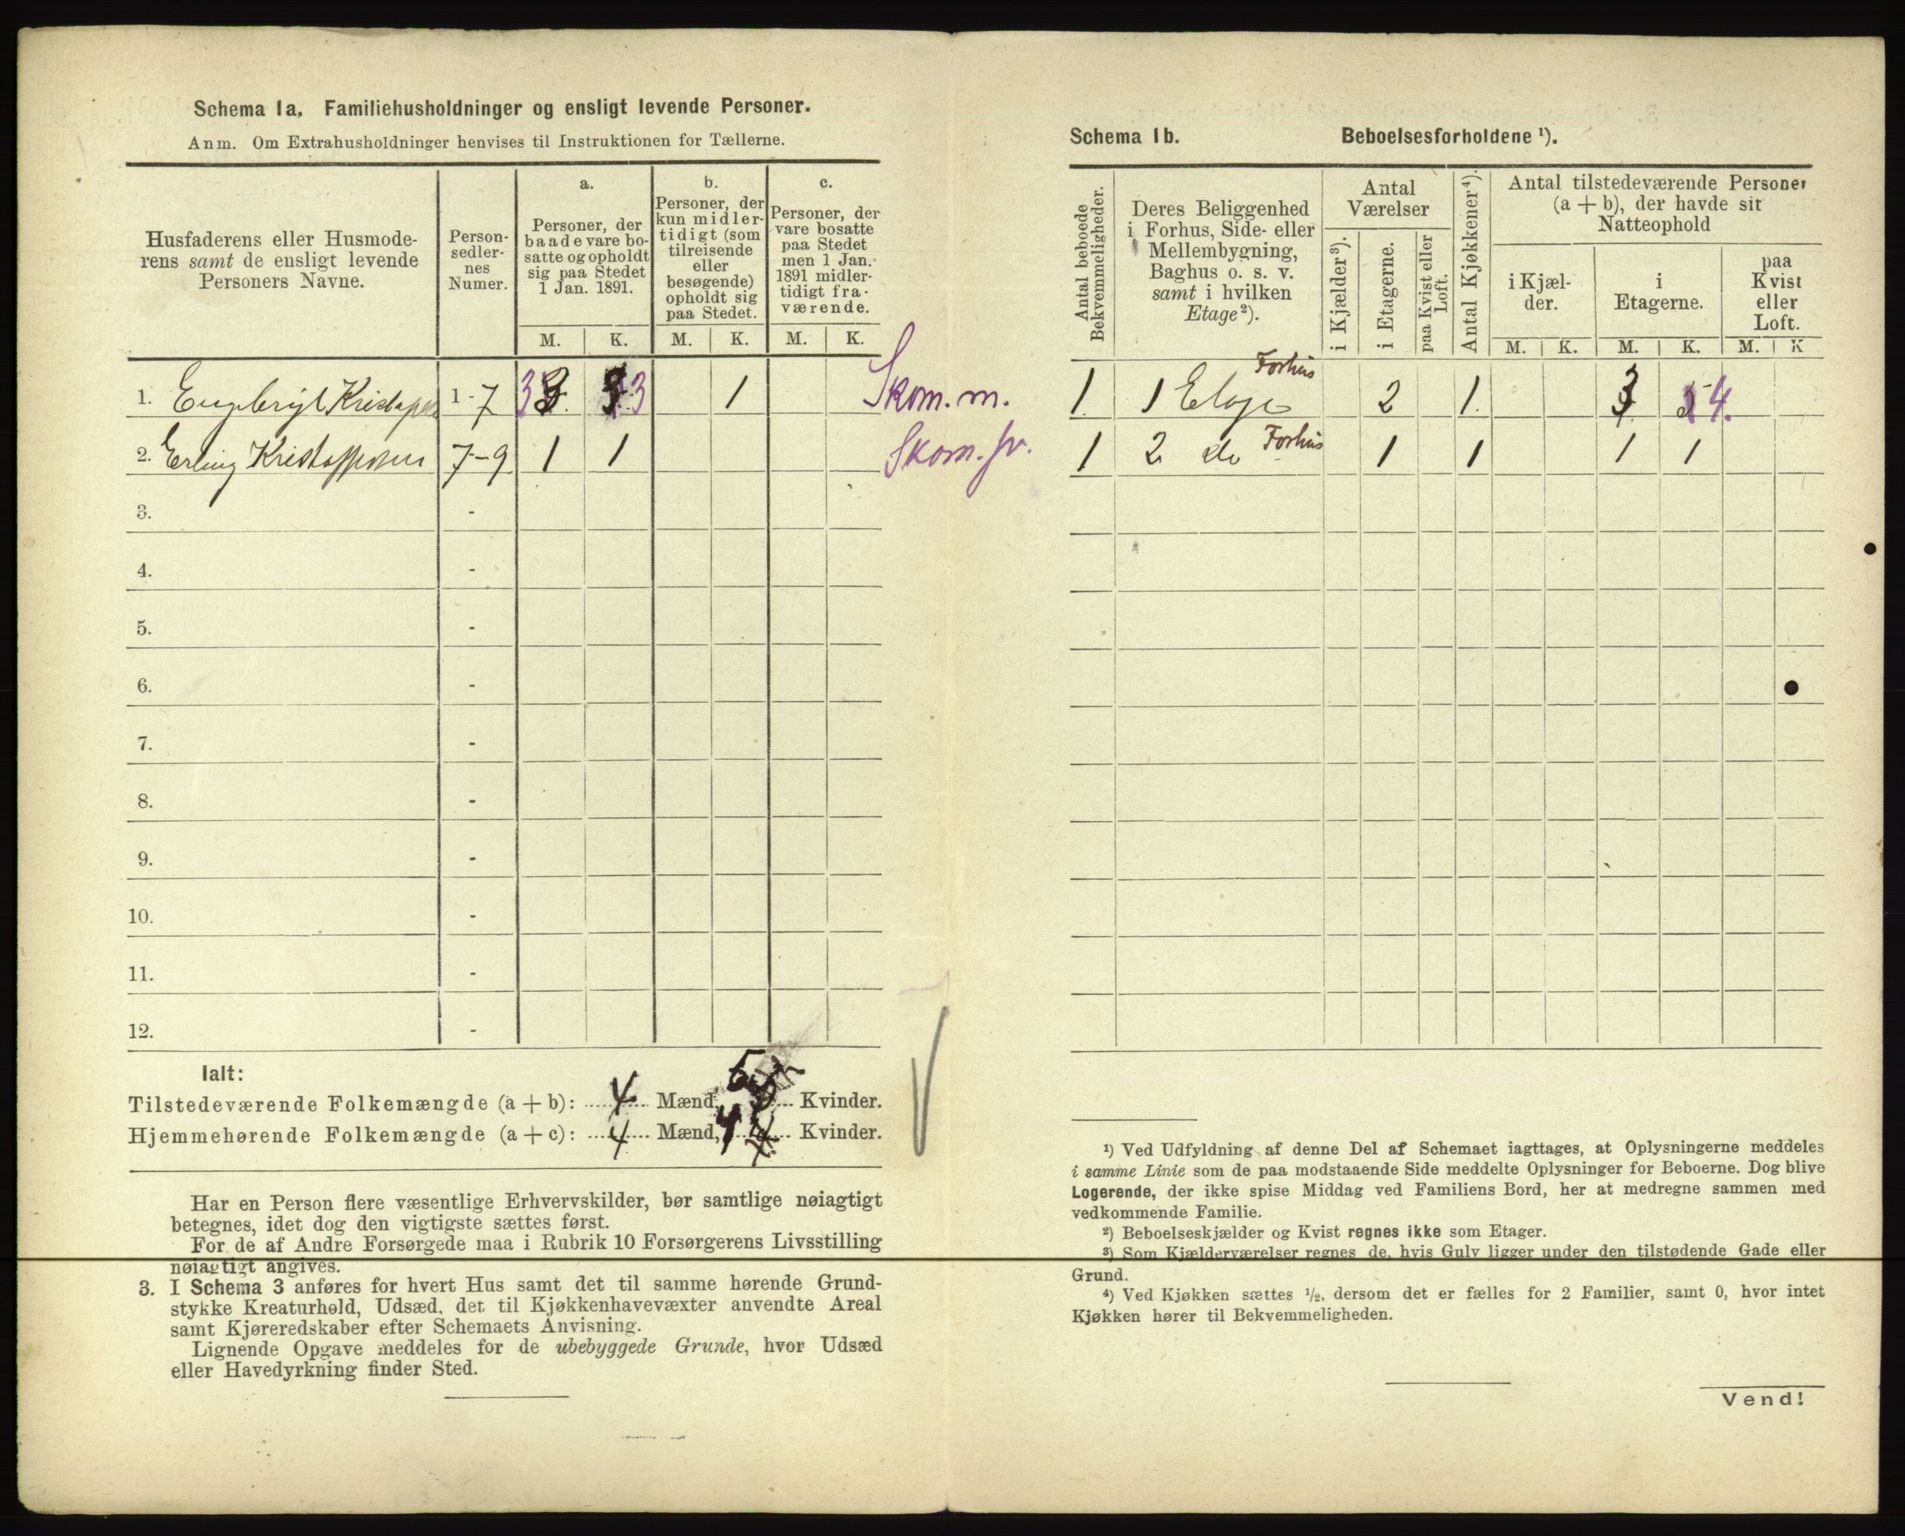 Schema 1a. Familiehusholdninger og ensligt levende Personer.
Anm. Om Extrahusholdninger henvises til Instruktionen for Tællerne.
Husfaderens eller Husmode-
rens samt de ensligt levende
Personers Navne.
Person-
sedler-
nes
Numer.
a.
Personer, der
baade vare bo-
satte og opholdt
sig paa Stedet
1 Jan. 1891.
b.
Personer, der
kun midler-
tidigt (som
tilreisende
eller
besøgende)
opholdt sig
paa Stedet.
c.
Personer, der
vare bosatte
paa Stedet
men 1 Jan.
1891 midler-
tidigt fra-
værende.
M. K. M. K. M. K.
1. 1-7 3 3 1 Skom. m.
2. Erling Kristoffersen 7-9 1 1 Skom. sv.
3. -
4. -
5. -
6. -
7. -
8. -
9. -
10. -
11. -
12. -
Ialt:
Tilstedeværende Folkemængde (a + b): 4 Mænd, 5 Kvinder.
Hjemmehørende Folkemængde (a + c): 4 Mænd, 4 Kvinder.
Har en Person flere væsentlige Erhvervskilder, bør samtlige nøiagtigt
betegnes, idet dog den vigtigste sættes først.
For de af Andre Forsørgede maa i Rubrik 10 Forsørgerens Livsstilling
nøiagtigt angives.
3. I Schema 3 anføres for hvert Hus samt det til samme hørende Grund-
stykke Kreaturhold, Udsæd, det til Kjøkkenhavevæxter anvendte Areal
samt Kjøreredskaber efter Schemaets Anvisning.
Lignende Opgave meddeles for de ubebyggede Grunde, hvor Udsæd
eller Havedyrkning finder Sted.
Schema 1b. Beboelsesforholdene ¹).
Antal beboede
Bekvemmeligheder.
Deres Beliggenhed
i Forhus, Side- eller
Mellembygning,
Baghus o. s. v.
samt i hvilken
Etage²).
Antal
Værelser
i Kjælder³).
i Etagerne.
paa Kvist eller
Loft.
Antal Kjøkkener⁴).
Antal tilstedeværende Personer
(a + b), der havde sit
Natteophold
i Kjæl-
der.
i
Etagerne.
paa
Kvist
eller
Loft.
M. K. M. K. M. K
1 1 Etage Forhus 2 1 3 4.
1 2 do Forhus 1 1 1 1
¹) Ved Udfyldning af denne Del af Schemaet iagttages, at Oplysningerne meddeles
i samme Linie som de paa modstaaende Side meddelte Oplysninger for Beboerne. Dog blive
Logerende, der ikke spise Middag ved Familiens Bord, her at medregne sammen med
vedkommende Familie.
²) Beboelseskjælder og Kvist regnes ikke som Etager.
³) Som Kjælderværelser regnes de, hvis Gulv ligger under den tilstødende Gade eller
Grund.
⁴) Ved Kjøkken sættes ½, dersom det er fælles for 2 Familier, samt 0, hvor intet
Kjøkken hører til Bekvemmeligheden.
Vend!